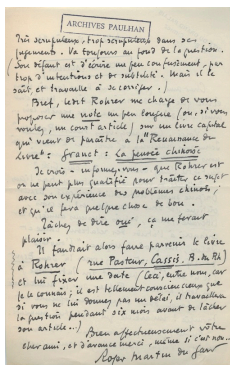 ARCHIVES PAULHAN
Très scrupuleux, trop scrupuleux dans ses
jugements. Va toujours au fond de la question.
(Son défaut est d'écrire un peu confusément, par
trop d'intentions et de subtilité. Mais il le
sait, et travaille à se corriger.)
Bref, ledit Rohrer me charge de vous
proposer une note un peu longue (ou, si vous
voulez, un court article) sur un livre capital
qui vient de paraître à la "Renaissance du
Livre" : Granet : La pensée chinoise
Je crois – informez-vous – que Rohrer est
on ne peut plus qualifié pour traiter ce sujet
avec son expérience des problèmes chinois ;
et qu'il fera quelque chose de bon.
Tâchez de dire oui, ça me ferait
plaisir.
Il faudrait alors faire parvenir le livre
à Rohrer (rue Pasteur, Cassis, B. du Rh)
et lui fixer une date (Ceci, entre nous, car
je le connais ; il est tellement consciencieux que
si vous ne lui donnez pas un délai, il travaillera
la question pendant six mois avant de lâcher
son article..)
Bien affectueusement vôtre
cher ami, et d'avance merci, même si c'est non...
Roger Martin du Gard